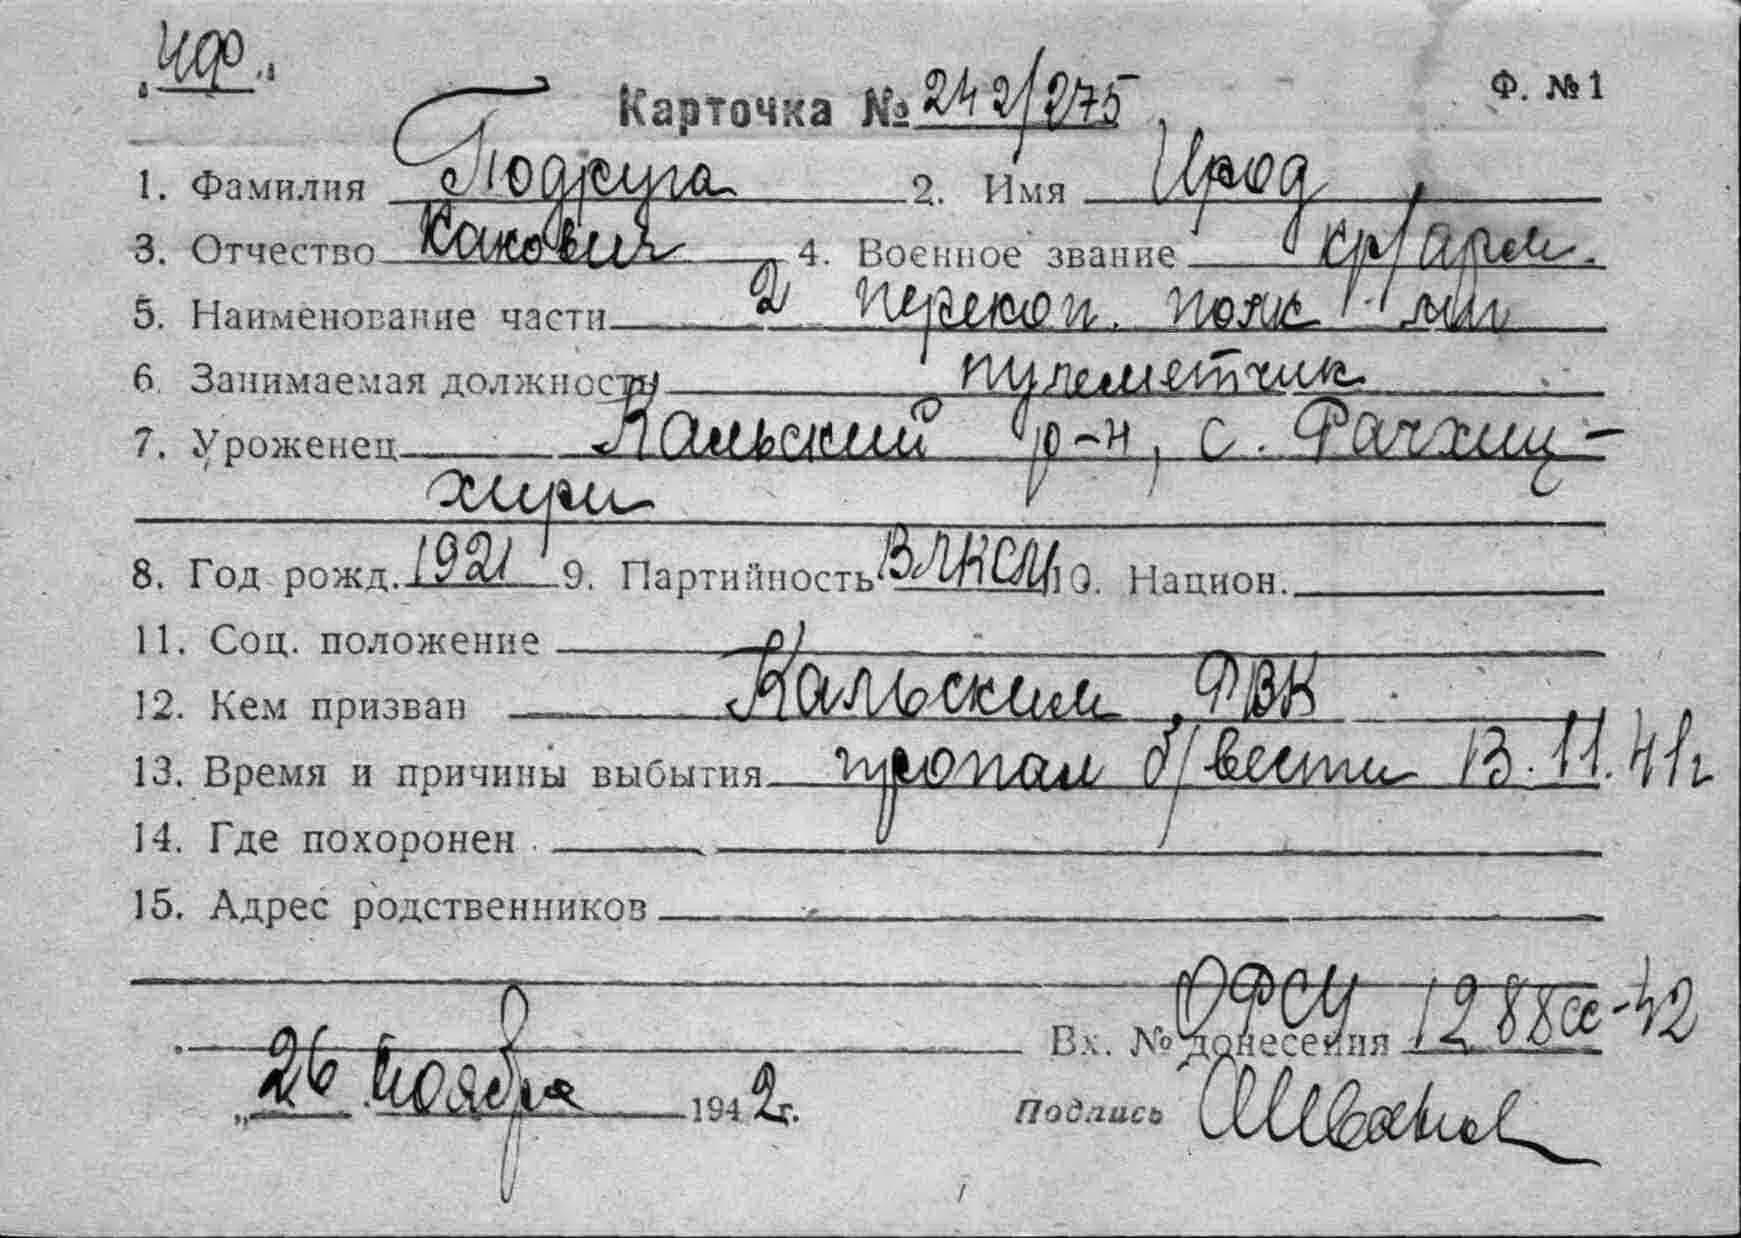 „ЧФ"
Карточка № 242/275 Ф. №1
1. Фамилия Поджуга 2. Имя Ирод
3. Отчество Какович 4. Военное звание кр/арм.
5. Наименование части 2 перекоп. полк мп
6. Занимаемая должность пулеметчик
7. Уроженец Кальский р-н, с. Рачхиц-
хири
8. Год рожд. 1921 9. Партийность ВЛКСМ 10. Национ.
11. Соц. положение
12. Кем призван Кальским РВК
13. Время и причины выбытия пропал б/вести 13.11.41г
14. Где похоронен
15. Адрес родственников
ОФСУ
Вх. № донесения 1288сс-42
„26 ноября 1942г.
Подпись